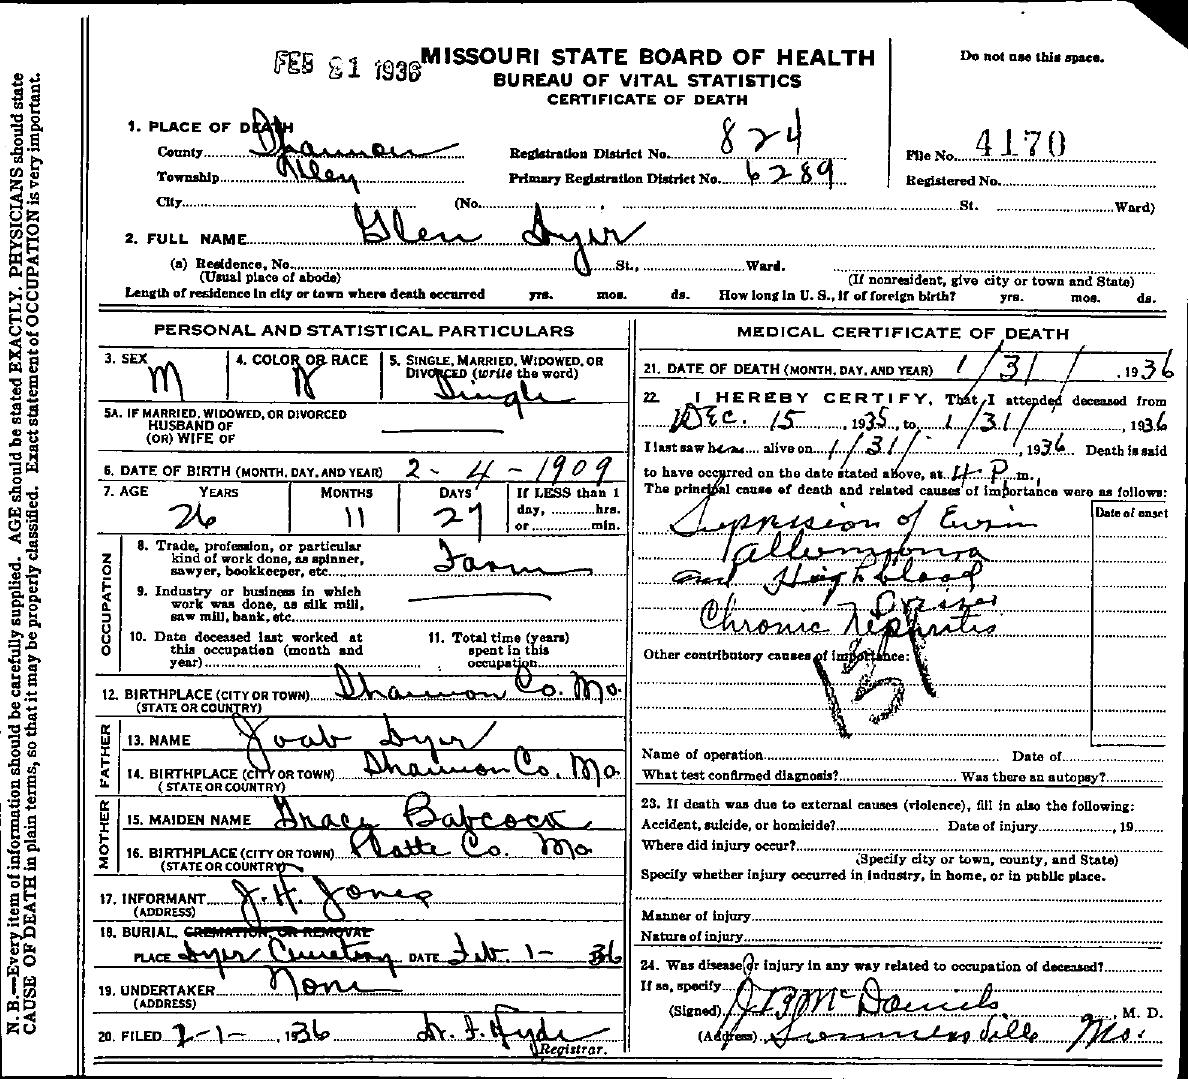 FEB 21 1936
MISSOURI STATE BOARD OF HEALTH
BUREAU OF VITAL STATISTICS
CERTIFICATE OF DEATH
Do not use this space.
1. PLACE OF DEATH
County Shannon Registration District No. 824 File No. 4170
Township Alley Primary Registration District No. 6289 Registered No.
City (No. , St. Ward)
2. FULL NAME Glen Dyer
(a) Residence, No. St., Ward.
(Usual place of abode) (If nonresident, give city or town and State)
Length of residence in city or town where death occurred yrs. mos. ds. How long in U. S., if of foreign birth? yrs. mos. ds.
PERSONAL AND STATISTICAL PARTICULARS
3. SEX M 4. COLOR OR RACE W 5. SINGLE, MARRIED, WIDOWED, OR
DIVORCED (write the word) Single
5A. IF MARRIED, WIDOWED, OR DIVORCED
HUSBAND OF
(OR) WIFE OF
6. DATE OF BIRTH (MONTH, DAY, AND YEAR) 2-4-1909
7. AGE YEARS MONTHS DAYS If LESS than 1
day, hrs.
or min.
26 11 27
OCCUPATION
8. Trade, profession, or particular
kind of work done, as spinner,
sawyer, bookkeeper, etc. Farm
9. Industry or business in which
work was done, as silk mill,
saw mill, bank, etc.
10. Date deceased last worked at
this occupation (month and
year)
11. Total time (years)
spent in this
occupation
12. BIRTHPLACE (CITY OR TOWN) Shannon Co. Mo.
(STATE OR COUNTRY)
FATHER
13. NAME Joab Dyer
14. BIRTHPLACE (CITY OR TOWN) Shannon Co. Mo
(STATE OR COUNTRY)
MOTHER
15. MAIDEN NAME Grace Babcock
16. BIRTHPLACE (CITY OR TOWN) Platte Co. Mo
(STATE OR COUNTRY)
17. INFORMANT J. H. Jones
(ADDRESS)
18. BURIAL, CREMATION OR REMOVAL
PLACE Dyer Cemetery DATE Feb. 1- 36
19. UNDERTAKER None
(ADDRESS)
20. FILED 2-1-, 1936 Dr. F. Hyde
Registrar.
MEDICAL CERTIFICATE OF DEATH
21. DATE OF DEATH (MONTH, DAY, AND YEAR) 1/31/, 1936
22. I HEREBY CERTIFY, That I attended deceased from
Dec. 15, 1935, to 1/31/, 1936
I last saw him alive on 1/31/, 1936 Death is said
to have occurred on the date stated above, at 4 P m.
The principal cause of death and related causes of importance were as follows:
Date of onset
Supression of Eurin
and High blood
Chronic Nephritis
Other contributory causes of importance:
131
Name of operation Date of
What test confirmed diagnosis? Was there an autopsy?
23. If death was due to external causes (violence), fill in also the following:
Accident, suicide, or homicide? Date of injury , 19
Where did injury occur?
(Specify city or town, county, and State)
Specify whether injury occurred in industry, in home, or in public place.
Manner of injury
Nature of injury
24. Was disease or injury in any way related to occupation of deceased?
If so, specify
(Signed) J B McDaniels, M. D.
(Address) Summersville Mo.
N. B.—Every item of information should be carefully supplied. AGE should be stated EXACTLY. PHYSICIANS should state
CAUSE OF DEATH in plain terms, so that it may be properly classified. Exact statement of OCCUPATION is very important.